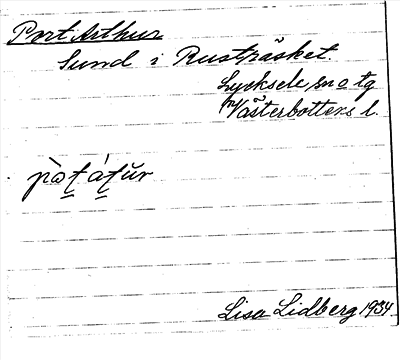 Port Arthur
Sund i Rusträsket.
Lycksele sn o tg
Västerbottens l.
pɔ̀t̠át̠ŭr
Lisa Lidberg 1934